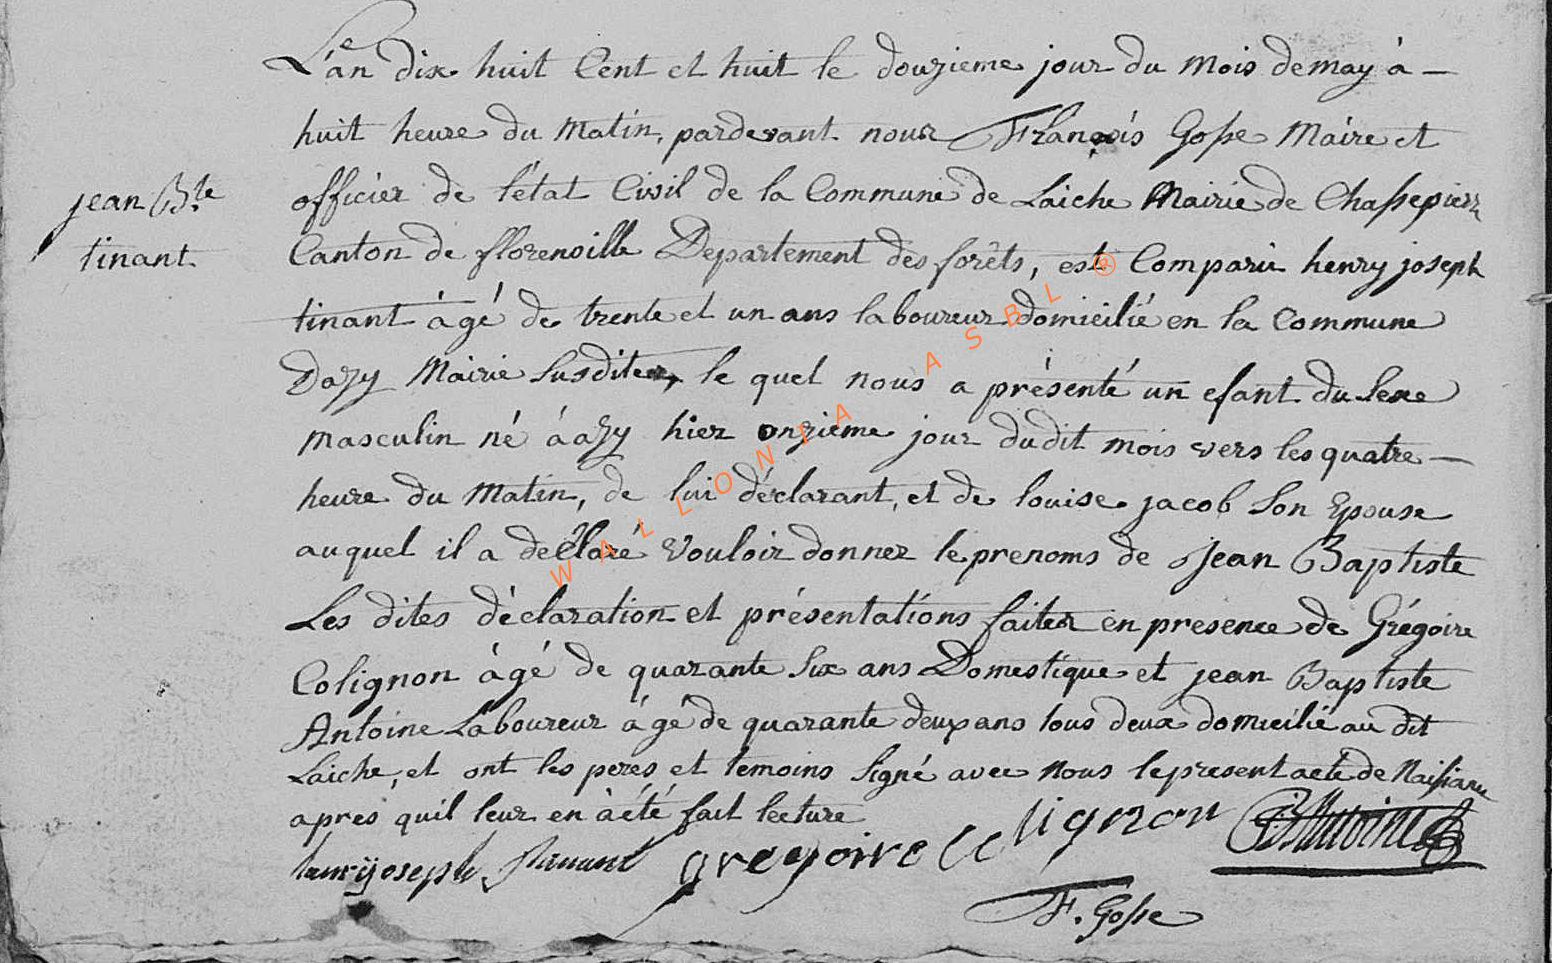 L'an dix huit Cent et huit le douzieme jour du mois de may à —
huit heure du matin, pardevant nous François Gosse Maire et
officier de l'état Civil de la Commune de Laiche Mairie de Chassepierre
Canton de florenville Departement des forêts, est Comparu henry joseph
tinant àgé de trente et un ans laboureur domicilié en la Commune
Dazy Mairie susdite, le quel nous a présenté un efant du Sexe
masculin né à azy hier onzieme jour dudit mois vers les quatre —
heure du matin, de lui déclarant, et de louise jacob Son Epouse
auquel il a declaré vouloir donner le prenoms de Jean Baptiste
Les dites déclaration et présentations faites en presence de Grégoire
Colignon àgé de quarante Six ans Domestique et jean Baptiste
Antoine Laboureur àgé de quarante deux ans tous deux domicilié au dit
Laiche, et ont les peres et temoins Signé avec nous le present acte de Naissance
apres quil leur en à été fait lecture
jean Bte
tinant
henrij joseph tinant gregoire Colignon JBAntoine
F. Gosse
WALLONIA ASBL ®